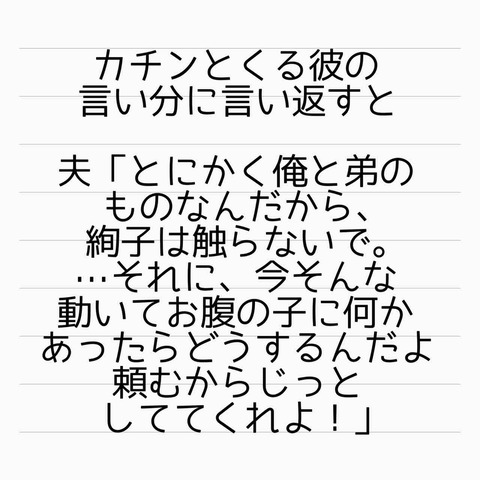 カチンとくる彼の
言い分に言い返すと
夫「とにかく俺と弟の
ものなんだから、
絢子は触らないで。
…それに、今そんな
動いてお腹の子に何か
あったらどうするんだよ
頼むからじっと
しててくれよ！」